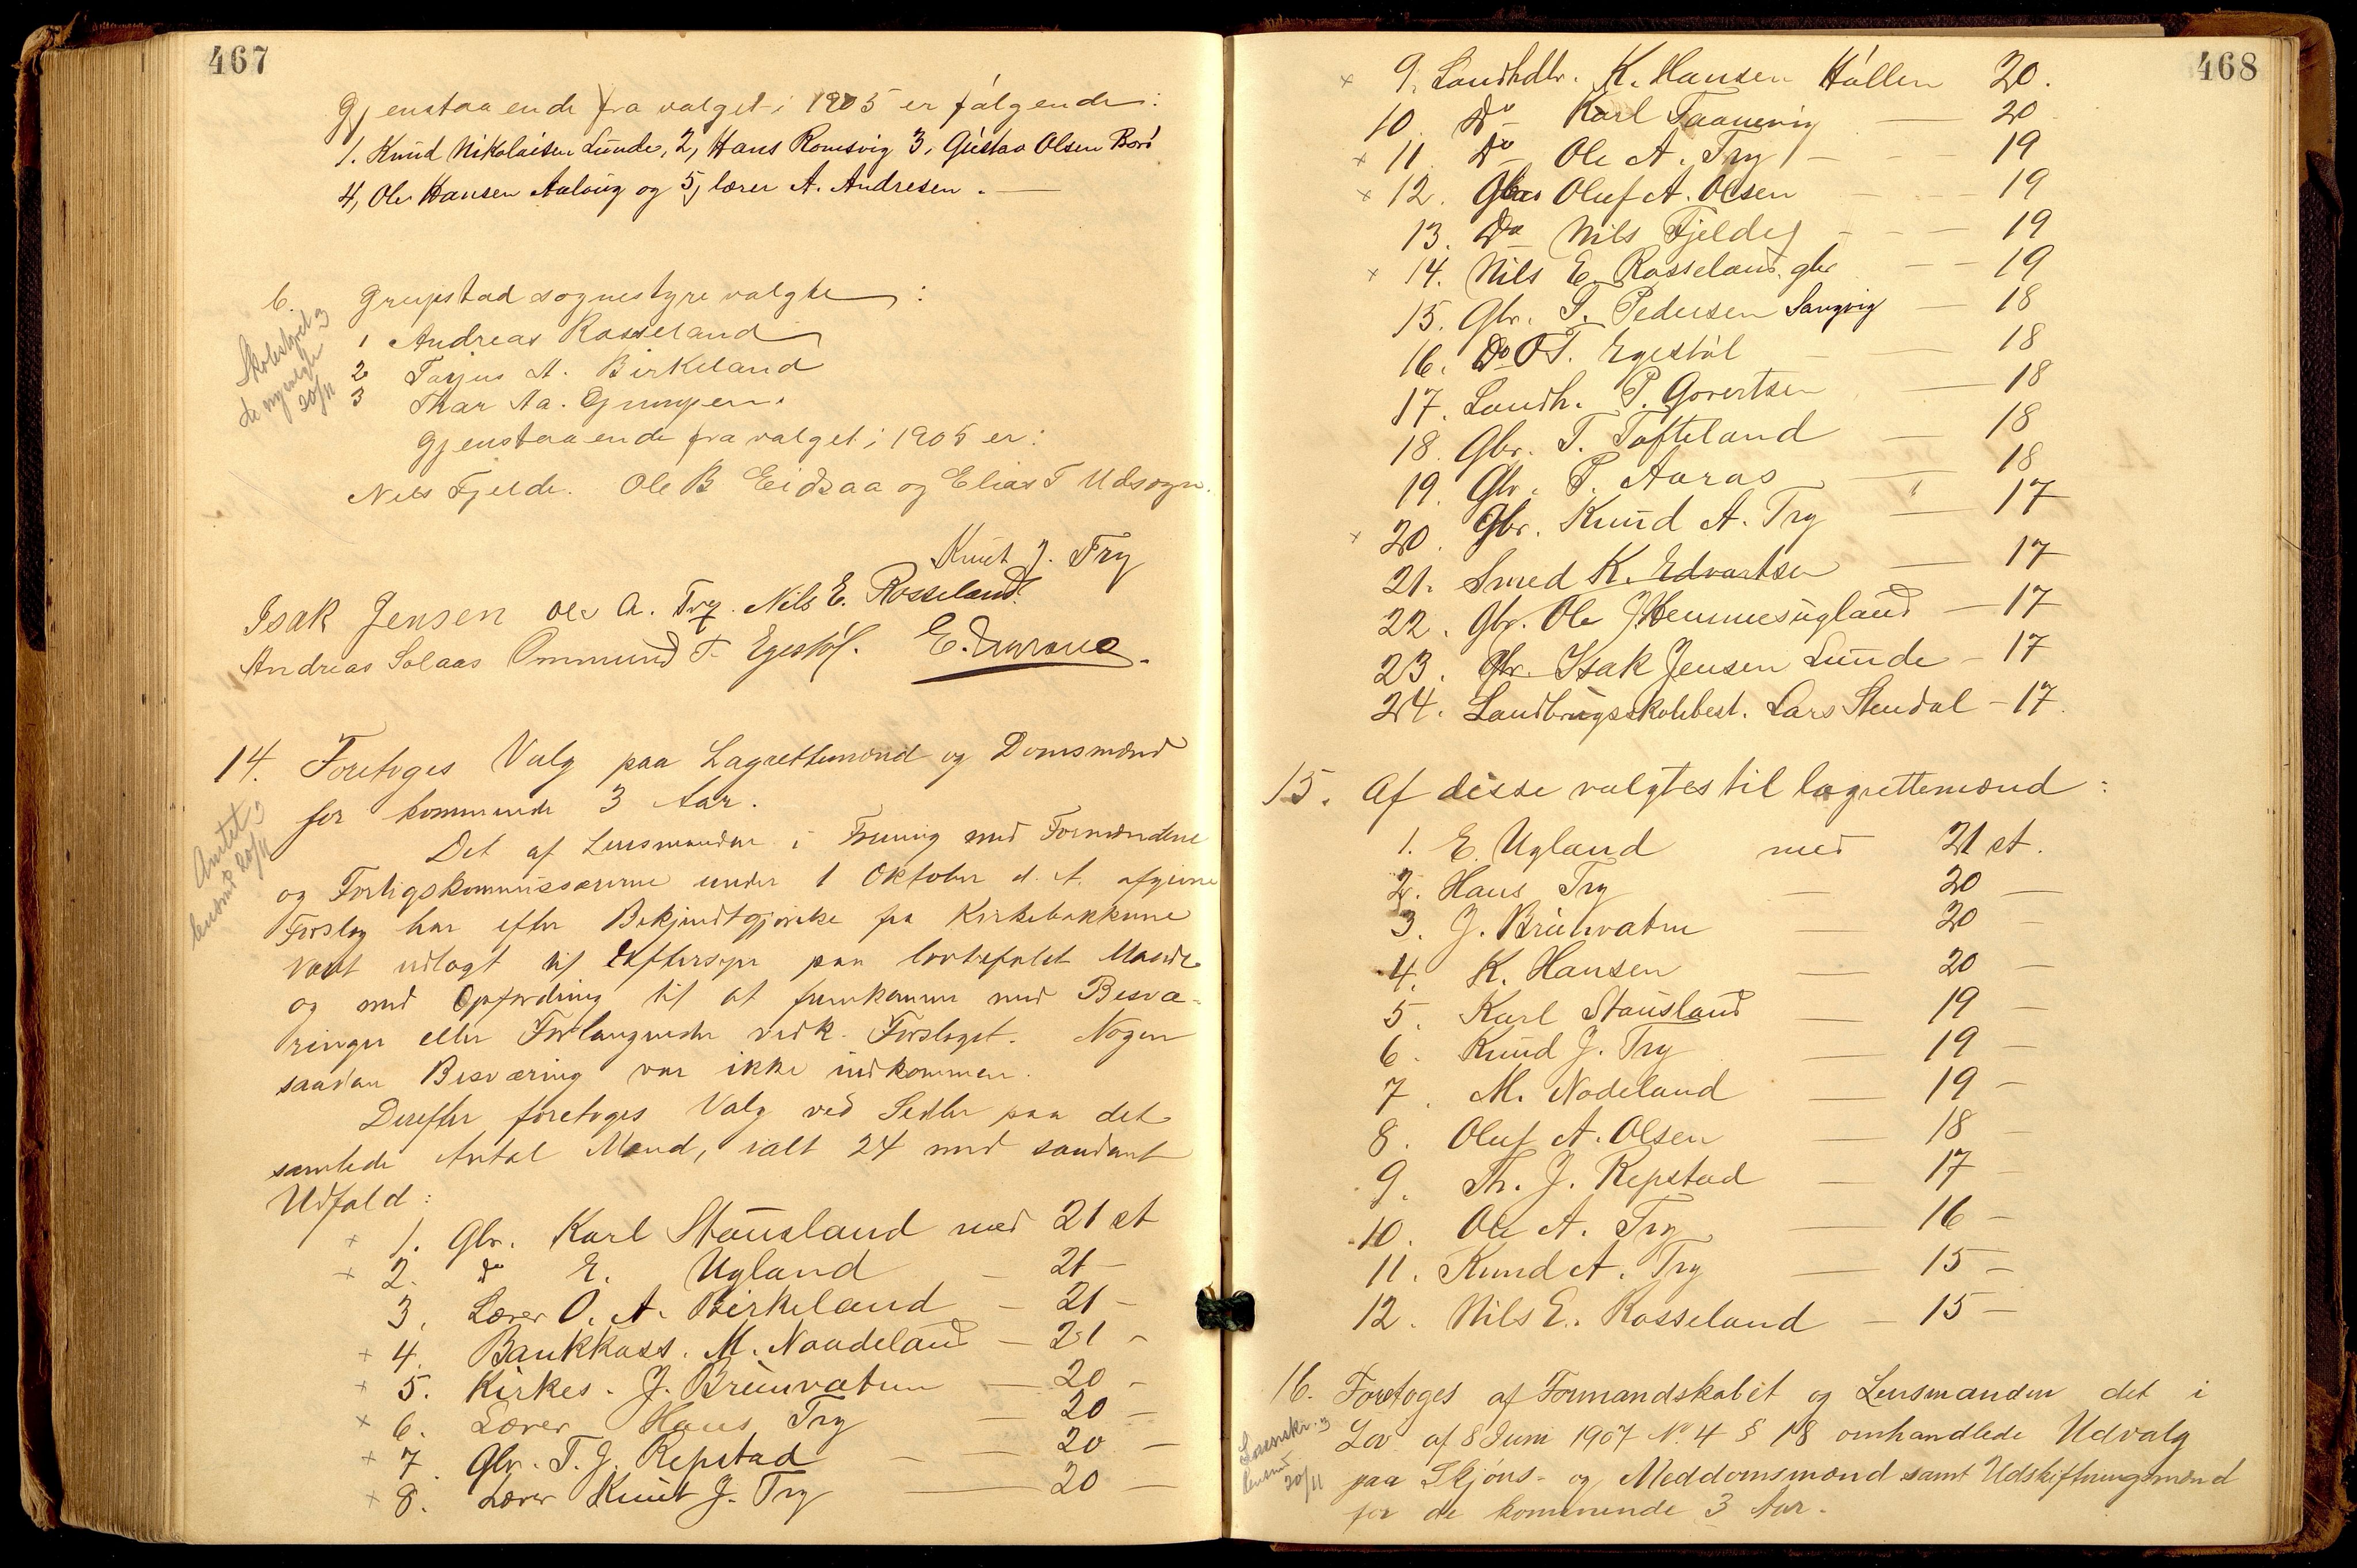 467
Gjenstaaende fra valget i 1905 er følgende:
1. Knud Nikolaisen Lunde, 2, Hans Romsvig 3, Gustav Olsen Borø
4, Ole Hansen Aalvig og 5, lærer A. Andresen. —
6. Greipstad sognestyre valgte:
Skolestyret og
de nyvalgte
20/11
1 Andreas Rosseland
2 Tarjus A. Birkeland
3 Thar Aa. Grumpen.
Gjenstaaende fra valget i 1905 er:
Nils Fjelde. Ole B Eidsaa og Elias T Udsogn.
Knut J. Try
Isak Jensen Ole A. Try. Nils E. Rosseland.
Andreas Solaas Ommund T. Egestøl.
14. Foretoges Valg paa Lagrettemænd og Domsmænd
for kommende 3 Aar.
Amtet og
lensmd 20/11
Det af Lensmanden i Forening med Formændene
og Forligskommissærerne under 1 Oktober d. A. afgivne
Forslag har efter Bekjendtgjørelse fra Kirkebakkerne
været udlagt til Eftersyn paa lovbefalet Maade
og med Opfordring til at fremkomme med Besvæ-
ringer eller Forlangender vedk. Forslaget. Nogen
saadan Besværing var ikke indkommen.
Derefter foretoges Valg ved Sedler paa det
samlede Antal Mænd, ialt 24 med saadant
Udfald:
x 1. Gbr. Karl Stausland med 21 st
x 2. do E. Ugland — 21 —
3. Lærer O. A. Birkeland — 21 —
x 4. Bankkass. M. Naadeland — 21 —
x 5. Kirkes. J. Brunvatne — 20 —
x 6. Lærer Hans Try — 20 —
x 7. Gbr. T. J. Repstad — 20 —
x 8. Lærer Knut J. Try — 20 —
468
x 9. Landhdlr. K. Hansen Høllen 20.
10. Do Karl Taanevig — 20
x 11. Do Ole A. Try — 19
x 12. Gbr Oluf A. Olsen — 19
13. Do Nils Fjelde — 19
x 14. Nils E. Rosseland gbr — 19
15. Gbr. S. Pedersen Sangvig — 18
16. Do O T. Egestøl — 18
17. Landh. P. Govertsen — 18
18. Gbr. T. Tofteland — 18
19. Gbr. P. Aaras — 18
x 20. Gbr. Knud A. Try — 17
21. Smed K. Edvartsen — 17
22. Gbr. Ole J Hemmesugland — 17
23. Gbr. Isak Jensen Lunde — 17
24. Landbrugsskolebest. Lars Stendal — 17.
15. Af disse valgtes til lagrettemænd:
1. E. Ugland med 21 st.
2. Hans Try — 20 —
3. J. Brunvatne — 20 —
4. K. Hansen — 20 —
5. Karl Stausland — 19 —
6. Knud J. Try — 19 —
7. M. Nodeland — 19 —
8. Oluf A. Olsen — 18 —
9. Th. J. Repstad — 17 —
10. Ole A. Try — 16 —
11. Knud A. Try — 15 —
12. Nils E. Rosseland — 15 —
16. Foretoges af Formandskabet og Lensmanden det i
Lov af 8 Juni 1907 No. 4 § 18 omhandlede Udvalg
paa Skjøns- og Meddomsmænd samt Udskiftningsmænd
for de kommende 3 Aar.
Sorenskr. og
lensmd
20/11